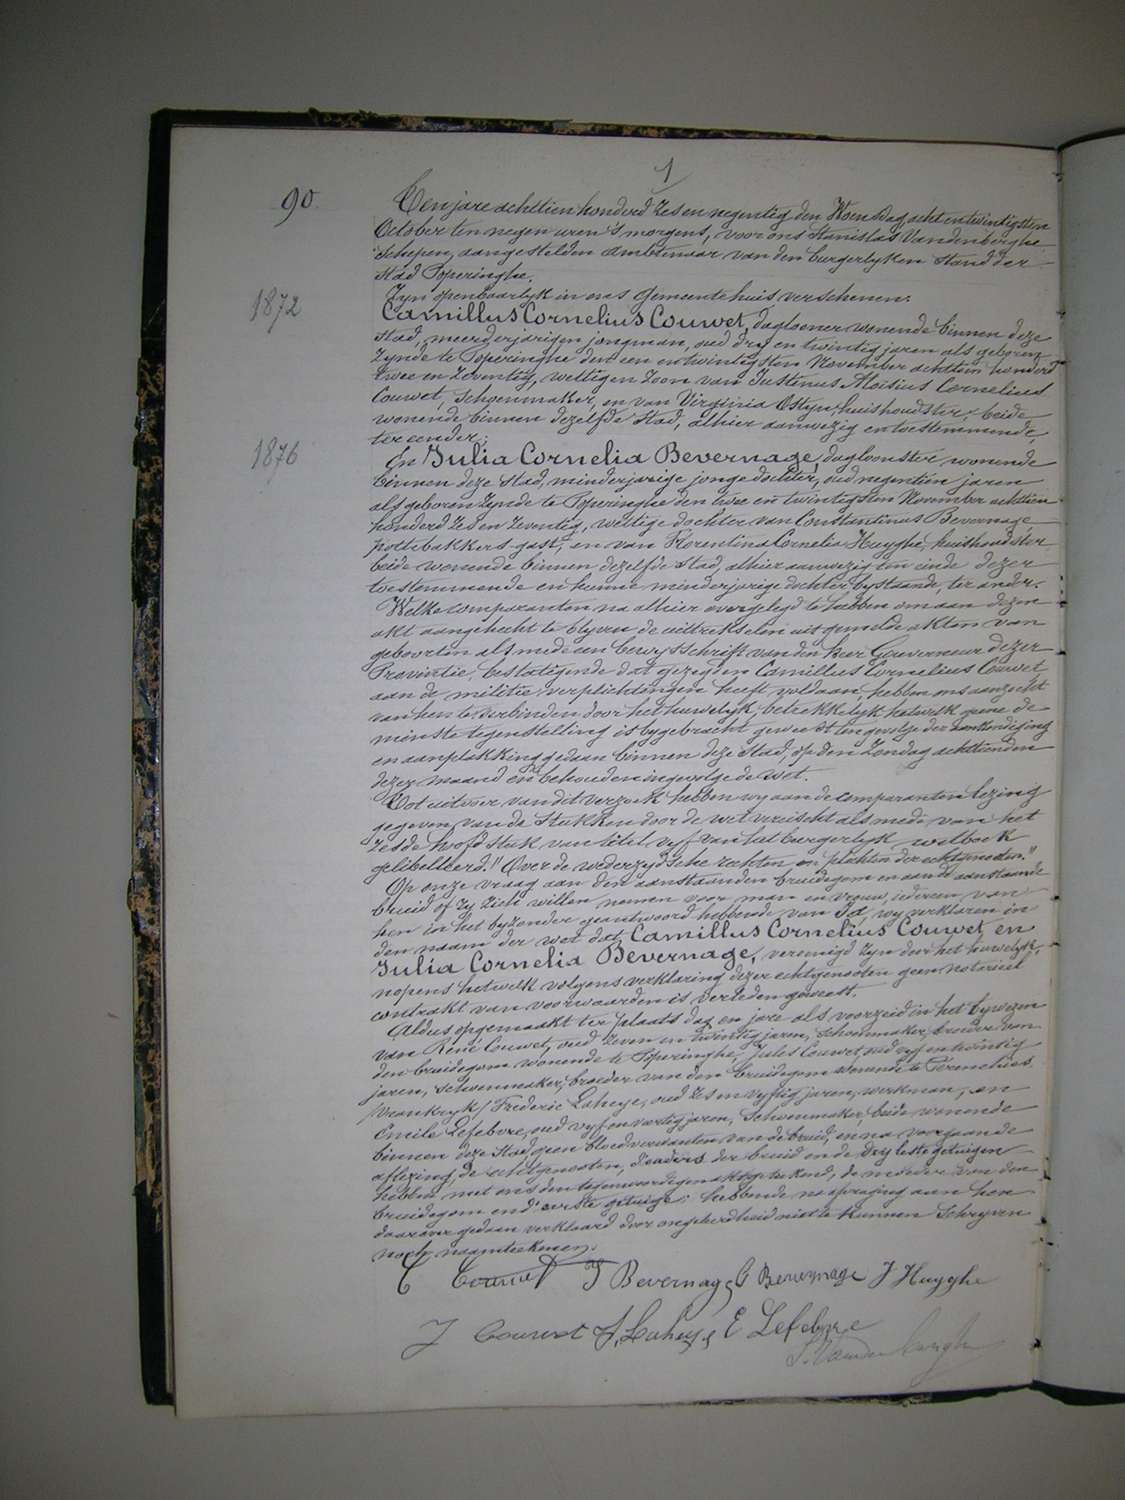 1
90. Ten jare achttien honderd zes en negentig den Woensdag acht en twintigsten
October ten negen uren 's morgens, voor ons Stanislas Vandenberghe
Schepen, aangestelden ambtenaar van den burgerlyken stand der
Stad Poperinghe.
Zyn openbaarlyk in ons Gemeentehuis verschenen:
1872 Camillus Cornelius Couwet, daglooner wonende binnen deze
stad, meerderjarigen jongman, oud dry en twintig jaren als geboren
zynde te Poperinghe den een en twintigsten November achttien honderd
twee en zeventig, wettigen zoon van Justenus Aloisius Cornelius
Couwet, schoenmaker, en van Virginia Ostyn, huishoudster, beide
wonende binnen dezelfde Stad, alhier aanwezig en toestemmende,
ter eender;
1876 En Julia Cornelia Bevernage, dagloonster wonende
binnen deze stad, minderjarige jonge dochter, oud negentien jaren
als geboren zynde te Poperinghe den twee en twintigsten November achttien
honderd zes en zeventig, wettige dochter van Constantinus Bevernage,
pottebakkersgast, en van Florentina Cornelia Huyghe, huishoudster
beide wonende binnen dezelfde Stad, alhier aanwezig ten einde dezer
toestemmende en hunne minderjarige dochter bystaande, ter ander.
Welke comparanten na alhier overgelegd te hebben om aan dezen
akt aangehecht te blyven de uittrekselen uit gemelde akten van
geboorten als mede een bewysschrift van den heer Gouverneur dezer
Provintie, bestatigende dat gezegden Camillus Cornelius Couwet,
aan de militie verplichtingen heeft voldaan, hebben ons aanzocht
van hen te verbinden door het huwelyk, betrekkelyk hetwelk geene de
minste tegenstelling is bygebracht geweest ten gevolge der aankondiging
en aanplakking gedaan binnen deze stad, op den Zondag achttienden
dezer maand en behouden ingevolge de wet.
Tot uitvoer van dit verzoek hebben wy aan de comparanten lezing
gegeven van de stukken door de wet vereischt als mede van het
zesde hoofdstuk van titel vyf van het burgerlyk wetboek
gelibelleerd "Over de wederzydsche rechten en plichten der echtgenooten."
Op onze vraag aan den aanstaanden bruidegom en aan de aanstaande
bruid of zy zich willen nemen voor man en vrouw, iedereen van
hen in het byzonder geantwoord hebbende van Ja, wy verklaren in
den naam der wet dat Camillus Cornelius Couwet en
Julia Cornelia Bevernage, vereenigd zyn door het huwelyk,
nopens hetwelk volgens verklaring dezer echtgenooten geen notarieel
contrakt van voorwaarden is verleden geweest.
Aldus opgemaakt ter plaats dag en jare als voorzeid in het bywezen
van René Couwet, oud zeven en twintig jaren, schoenmaker, broeder van
den bruidegom wonende te Poperinghe, Jules Couwet oud vyf en twintig
jaren, schoenmaker, broeder van den bruidegom wonende te Perenchies
/Vrankryk/ Frederic Laheye, oud zes en vyftig jaren, werkman, en
Emile Lefebvre, oud vyf en veertig jaren, schoenmaker, beide wonende
binnen deze Stad, geen bloedverwanten van de bruid, en na voorgaande
aflezing, de echtgenooten, d'ouders der bruid en de dry leste getuigen
hebben met ons den tegenwoordigen akt geteekend, de moeder van den
bruidegom en d'eerste getuige hebbende na afvraging aan hen
daarover gedaan verklaard door ongeleerdheid niet te kunnen schryven
noch naamteekenen.
C Couwet J Bevernage C Bevernage F Huyghe
J Couwet F, Laheye E Lefebvre
S. Vandenberghe